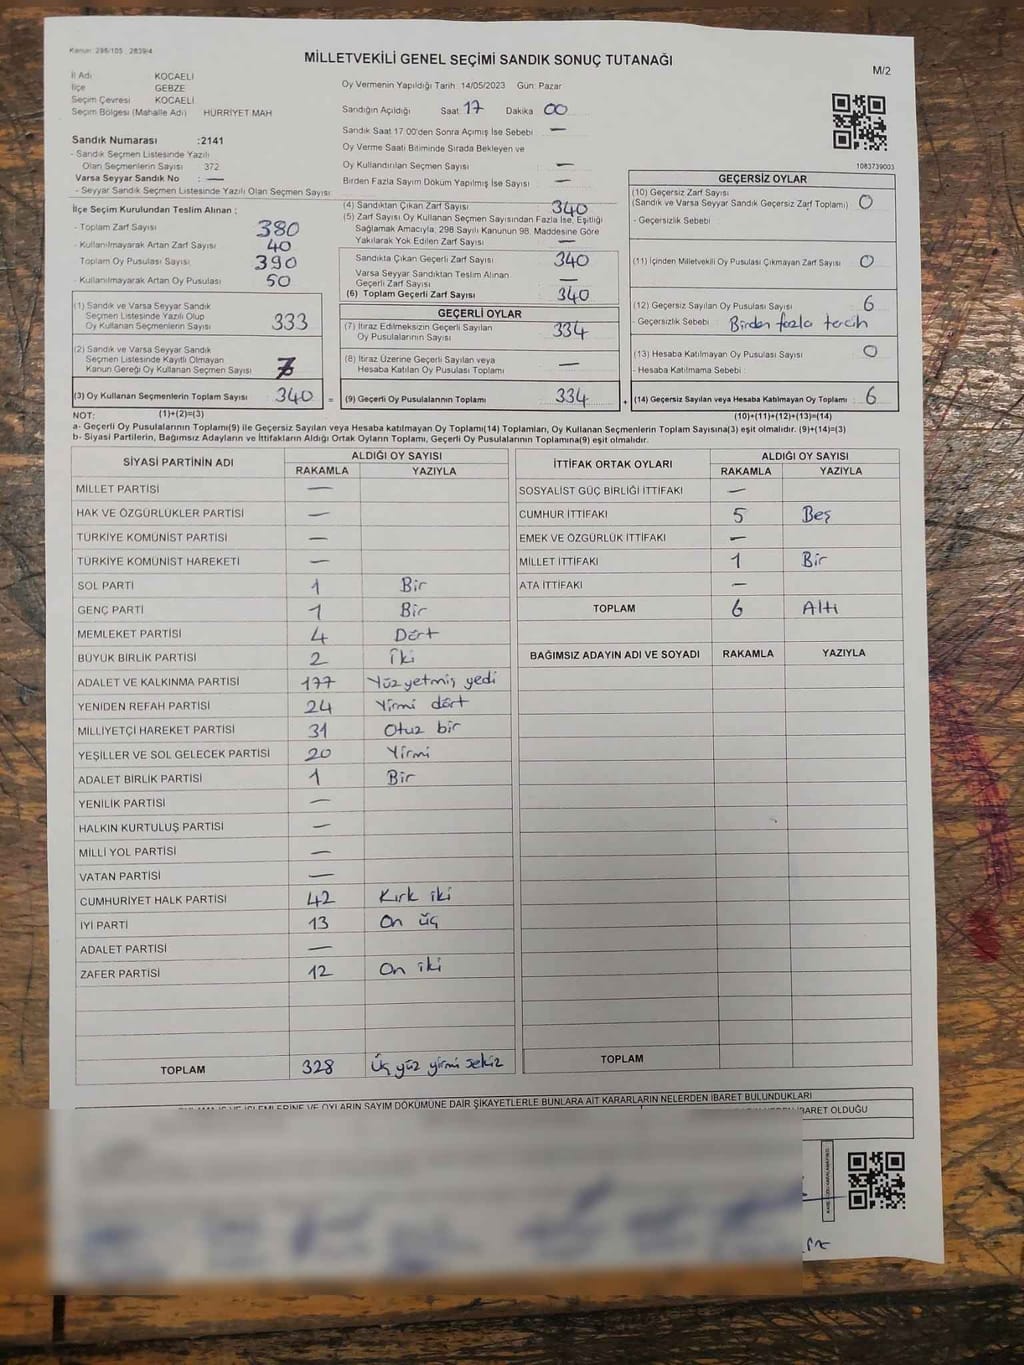 Kanun: 298/105 ; 2839/4
MİLLETVEKİLİ GENEL SEÇİMİ SANDIK SONUÇ TUTANAĞI
M/2
İl Adı KOCAELİ
İlçe GEBZE
Seçim Çevresi KOCAELİ
Seçim Bölgesi (Mahalle Adı) HÜRRİYET MAH
Sandık Numarası :2141
- Sandık Seçmen Listesinde Yazılı
Olan Seçmenlerin Sayısı 372
Varsa Seyyar Sandık No : —
- Seyyar Sandık Seçmen Listesinde Yazılı Olan Seçmen Sayısı:
Oy Vermenin Yapıldığı Tarih : 14/05/2023 Gün: Pazar
Sandığın Açıldığı Saat 17 Dakika 00
Sandık Saat 17.00'den Sonra Açımış İse Sebebi —
Oy Verme Saati Bitiminde Sırada Bekleyen ve
Oy Kullandırılan Seçmen Sayısı —
Birden Fazla Sayım Döküm Yapılmış İse Sayısı —
1083739003
İlçe Seçim Kurulundan Teslim Alınan ;
- Toplam Zarf Sayısı 380
- Kullanılmayarak Artan Zarf Sayısı 40
Toplam Oy Pusulası Sayısı 390
- Kullanılmayarak Artan Oy Pusulası 50
(1) Sandık ve Varsa Seyyar Sandık
Seçmen Listesinde Yazılı Olup
Oy Kullanan Seçmenlerin Sayısı 333
(2) Sandık ve Varsa Seyyar Sandık
Seçmen Listesinde Kayıtlı Olmayan
Kanun Gereği Oy Kullanan Seçmen Sayısı 7
(3) Oy Kullanan Seçmenlerin Toplam Sayısı 340 =
(4) Sandıktan Çıkan Zarf Sayısı 340
(5) Zarf Sayısı Oy Kullanan Seçmen Sayısından Fazla İse, Eşitliği
Sağlamak Amacıyla, 298 Sayılı Kanunun 98. Maddesine Göre
Yakılarak Yok Edilen Zarf Sayısı —
Sandıkta Çıkan Geçerli Zarf Sayısı 340
Varsa Seyyar Sandıktan Teslim Alınan
Geçerli Zarf Sayısı —
(6) Toplam Geçerli Zarf Sayısı 340
GEÇERLİ OYLAR
(7) İtiraz Edilmeksizin Geçerli Sayılan
Oy Pusulalarının Sayısı 334
(8) İtiraz Üzerine Geçerli Sayılan veya
Hesaba Katılan Oy Pusulası Toplamı —
(9) Geçerli Oy Pusulalarının Toplamı 334 +
GEÇERSİZ OYLAR
(10) Geçersiz Zarf Sayısı
(Sandık ve Varsa Seyyar Sandık Geçersiz Zarf Toplamı) 0
- Geçersizlik Sebebi :
(11) İçinden Milletvekili Oy Pusulası Çıkmayan Zarf Sayısı 0
(12) Geçersiz Sayılan Oy Pusulası Sayısı 6
- Geçersizlik Sebebi : Birden fazla tercih
(13) Hesaba Katılmayan Oy Pusulası Sayısı 0
- Hesaba Katılmama Sebebi :
(14) Geçersiz Sayılan veya Hesaba Katılmayan Oy Toplamı : 6
NOT: (1)+(2)=(3) (10)+(11)+(12)+(13)=(14)
a- Geçerli Oy Pusulalarının Toplamı(9) ile Geçersiz Sayılan veya Hesaba katılmayan Oy Toplamı(14) Toplamları, Oy Kullanan Seçmenlerin Toplam Sayısına(3) eşit olmalıdır. (9)+(14)=(3)
b- Siyasi Partilerin, Bağımsız Adayların ve İttifakların Aldığı Ortak Oyların Toplamı, Geçerli Oy Pusulalarının Toplamına(9) eşit olmalıdır.
SİYASİ PARTİNİN ADI ALDIĞI OY SAYISI
RAKAMLA YAZIYLA
MİLLET PARTİSİ —
HAK VE ÖZGÜRLÜKLER PARTİSİ —
TÜRKİYE KOMÜNİST PARTİSİ —
TÜRKİYE KOMÜNİST HAREKETİ —
SOL PARTİ 1 Bir
GENÇ PARTİ 1 Bir
MEMLEKET PARTİSİ 4 Dört
BÜYÜK BİRLİK PARTİSİ 2 İki
ADALET VE KALKINMA PARTİSİ 177 Yüz yetmiş yedi
YENİDEN REFAH PARTİSİ 24 Yirmi dört
MİLLİYETÇİ HAREKET PARTİSİ 31 Otuz bir
YEŞİLLER VE SOL GELECEK PARTİSİ 20 Yirmi
ADALET BİRLİK PARTİSİ 1 Bir
YENİLİK PARTİSİ —
HALKIN KURTULUŞ PARTİSİ —
MİLLİ YOL PARTİSİ —
VATAN PARTİSİ —
CUMHURİYET HALK PARTİSİ 42 Kırk iki
İYİ PARTİ 13 On üç
ADALET PARTİSİ —
ZAFER PARTİSİ 12 On iki
TOPLAM 328 Üç yüz yirmi sekiz
İTTİFAK ORTAK OYLARI ALDIĞI OY SAYISI
RAKAMLA YAZIYLA
SOSYALİST GÜÇ BİRLİĞİ İTTİFAKI —
CUMHUR İTTİFAKI 5 Beş
EMEK VE ÖZGÜRLÜK İTTİFAKI —
MİLLET İTTİFAKI 1 Bir
ATA İTTİFAKI —
TOPLAM 6 Altı
BAĞIMSIZ ADAYIN ADI VE SOYADI RAKAMLA YAZIYLA
TOPLAM
İŞLEMLERİNE VE OYLARIN SAYIM DÖKÜMÜNE DAİR ŞİKAYETLERLE BUNLARA AİT KARARLARIN NELERDEN İBARET BULUNDUKLARI
İBARET OLDUĞU